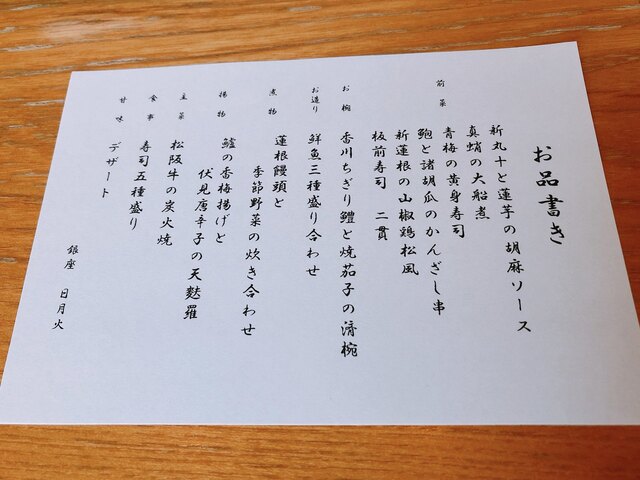 お品書き
前菜
新丸十と蓮芋の胡麻ソース
真蛸の大船煮
青梅の黄身寿司
鮑と諸胡瓜のかんざし串
新蓮根の山椒鶏松風
板前寿司 二貫
お椀
香川ちぎり鱧と焼茄子の清椀
お造り
鮮魚三種盛り合わせ
煮物
蓮根饅頭と
季節野菜の炊き合わせ
揚物
鱸の香梅揚げと
伏見唐辛子の天麩羅
主菜
松阪牛の炭火焼
食事
寿司五種盛り
甘味
デザート
銀座 日月火